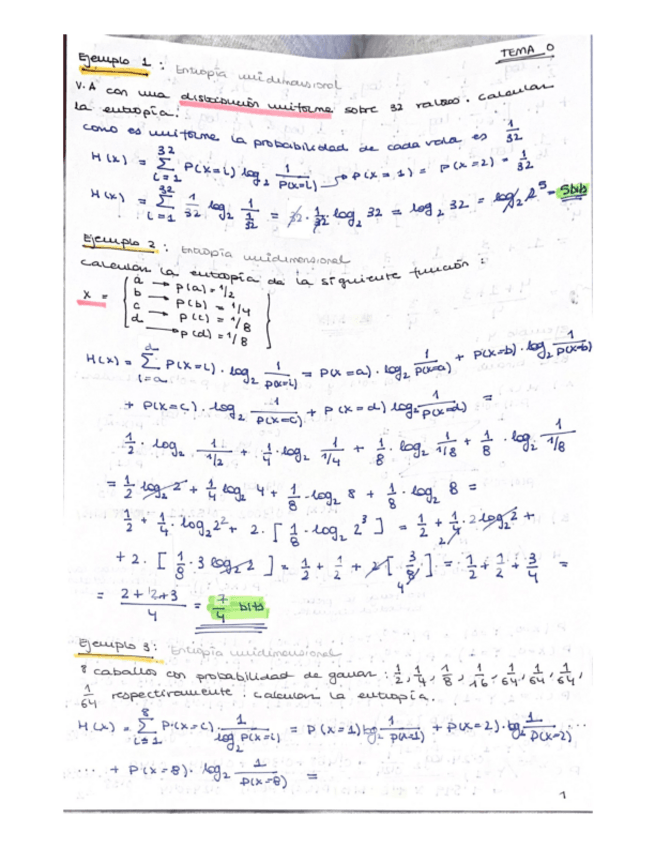 TEMA 0
Ejemplo 1 : Entropía unidimensional
V.A con una distribución uniforme sobre 32 valores. Calcular
la entropía.
como es uniforme la probabilidad de cada valor es 1/32
H(x) = Σ_{i=1}^{32} P(x=i) log₂ 1/P(x=i) → P(x=1) = P(x=2) = 1/32
H(x) = Σ_{i=1}^{32} 1/32 log₂ 1/(1/32) = 32 · 1/32 · log₂ 32 = log₂ 32 = log₂ 2⁵ = 5 bits
Ejemplo 2 : Entropía unidimensional
Calcular la entropía de la siguiente función :
x = { a → p(a) = 1/2
b → p(b) = 1/4
c → p(c) = 1/8
d → p(d) = 1/8 }
H(x) = Σ_{i=a}^{d} P(x=i) · log₂ 1/P(x=i) = P(x=a) · log₂ 1/P(x=a) + P(x=b) · log₂ 1/P(x=b)
+ P(x=c) · log₂ 1/P(x=c) + P(x=d) log₂ 1/P(x=d) =
1/2 · log₂ 1/(1/2) + 1/4 · log₂ 1/(1/4) + 1/8 · log₂ 1/(1/8) + 1/8 · log₂ 1/(1/8)
= 1/2 log₂ 2 + 1/4 log₂ 4 + 1/8 · log₂ 8 + 1/8 · log₂ 8 =
1/2 + 1/4 · log₂ 2² + 2 · [ 1/8 · log₂ 2³ ] = 1/2 + 1/4 · 2 log₂ 2 +
+ 2 · [ 1/8 · 3 log₂ 2 ] = 1/2 + 1/2 + 2 [ 3/8 · ] = 1/2 + 1/2 + 3/4 =
= (2+2+3)/4 = 7/4 bits
Ejemplo 3 : Entropía unidimensional
8 caballos con probabilidad de ganar : 1/2, 1/4, 1/8, 1/16, 1/64, 1/64, 1/64,
1/64 respectivamente : calcular la entropía.
H(x) = Σ_{i=1}^{8} P(x=i) · 1/log₂ P(x=i) = P(x=1) log₂ 1/P(x=1) + P(x=2) · log₂ 1/P(x=2) ...
... + P(x=8) · log₂ 1/P(x=8) =
1